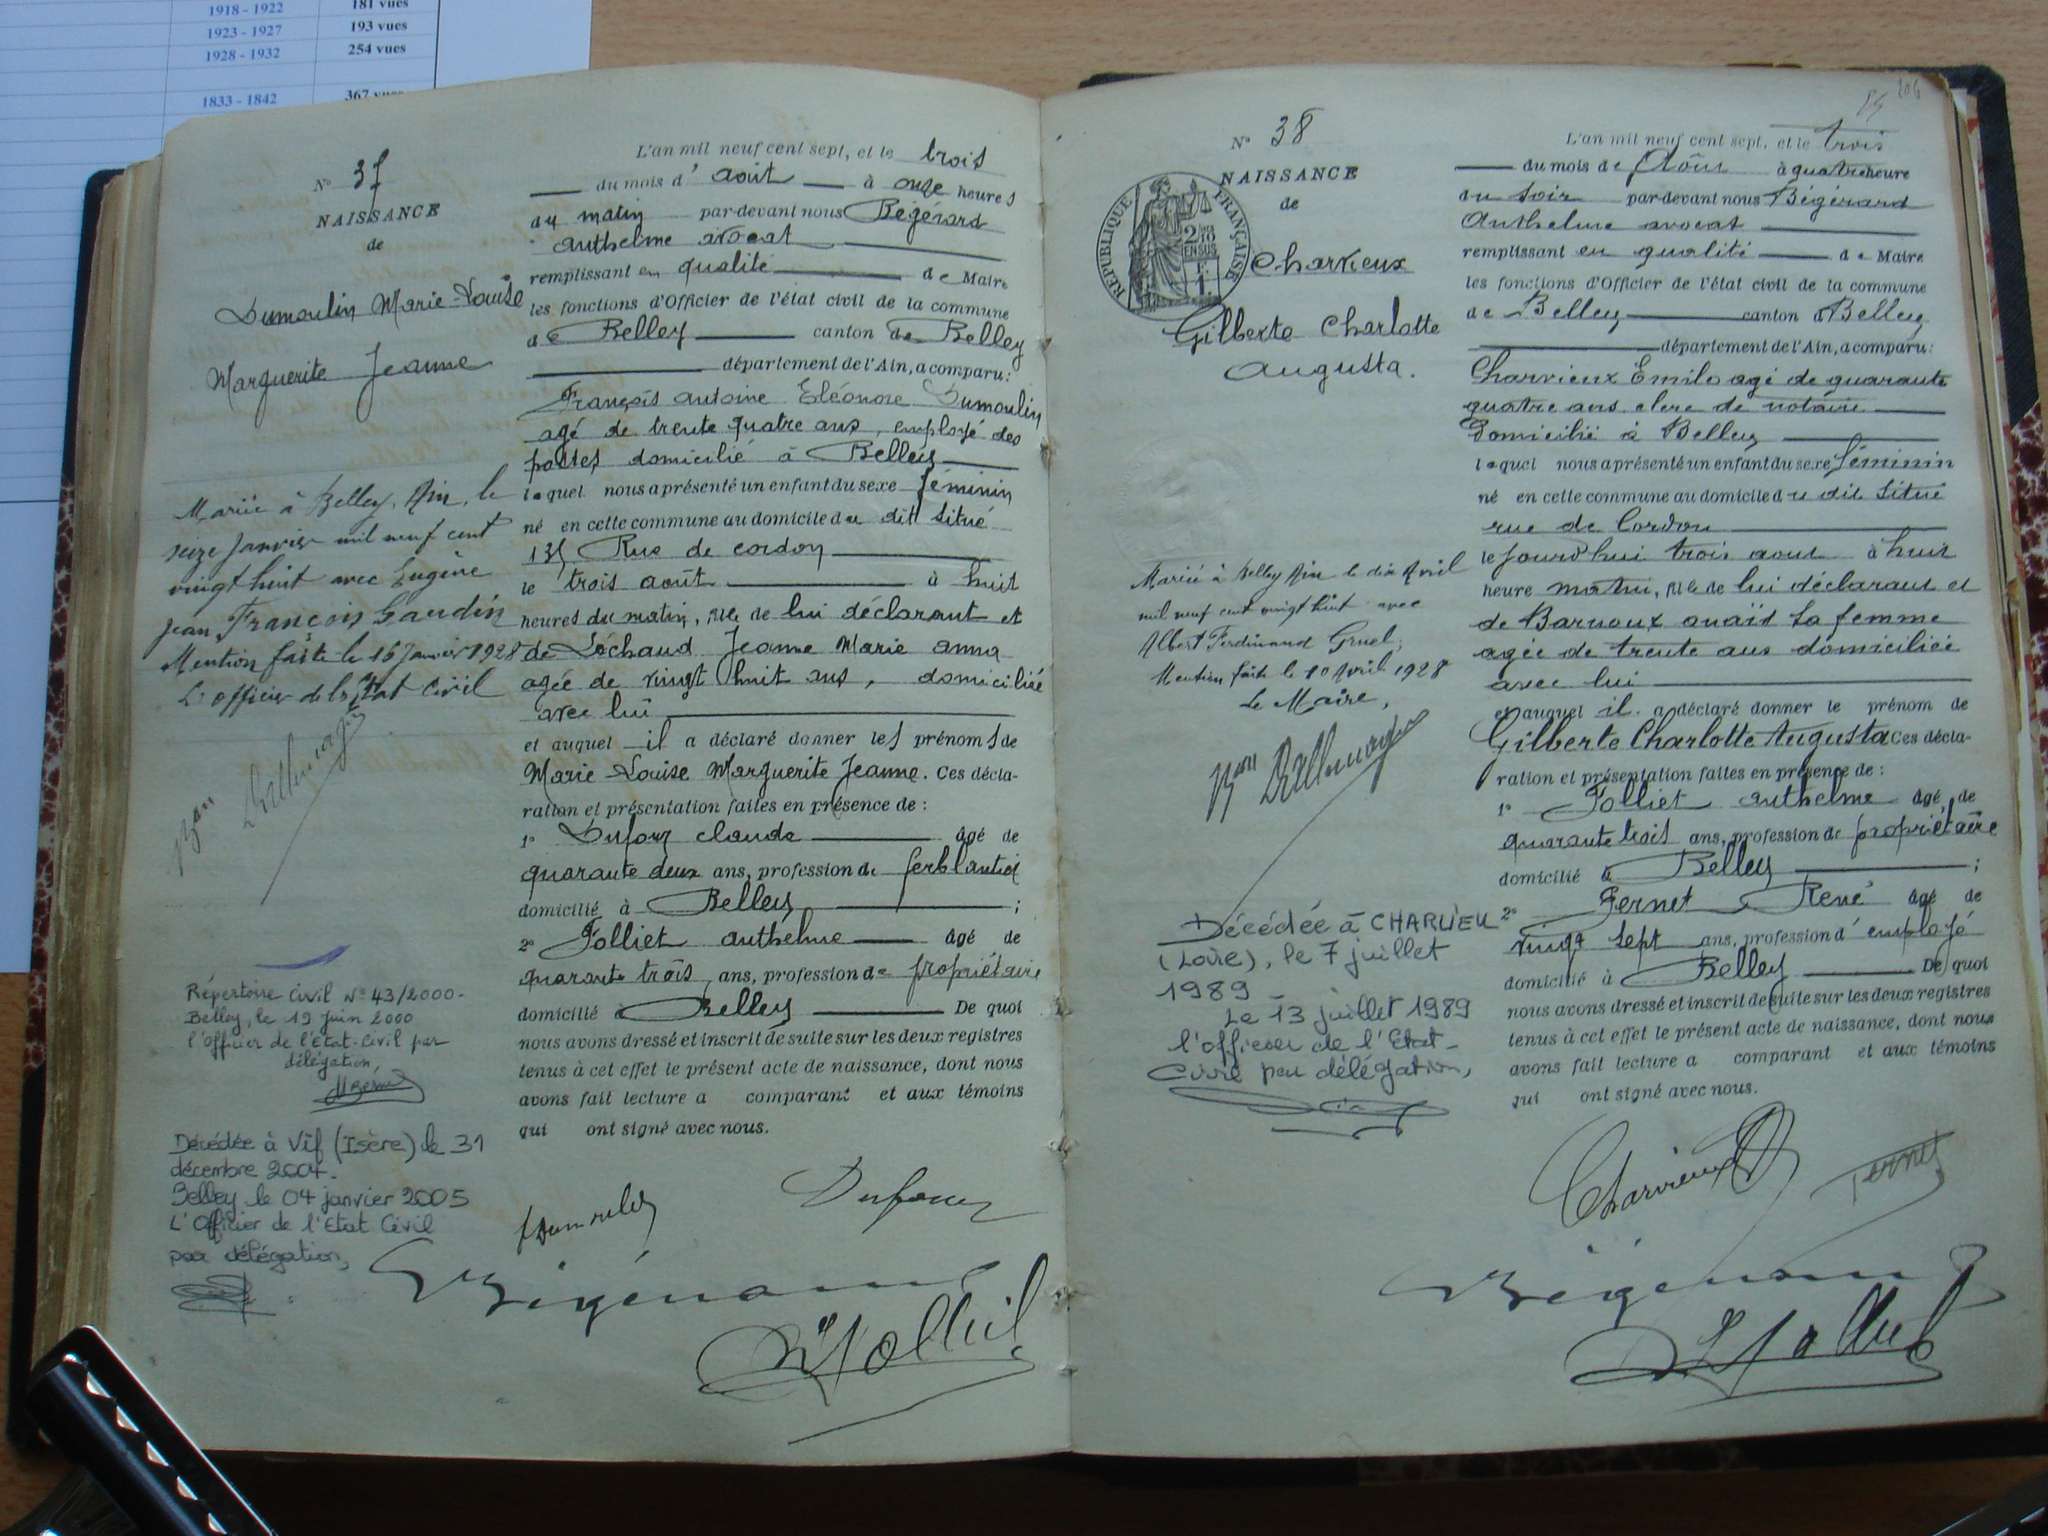 1918 - 1922 181 vues
1923 - 1927 193 vues
1928 - 1932 254 vues
1833 - 1842 367 vues
N° 37
NAISSANCE
de
Dumoulin Marie-Louise
Marguerite Jeanne
Mariée à Belley, Ain, le
seize Janvier mil neuf cent
vingt huit avec Eugène
Jean François Gaudin
Mention faite le 16 Janvier 1928
L'officier de l'Etat Civil
Répertoire Civil N° 43/2000-
Belley, le 19 juin 2000
l'officier de l'Etat-Civil par
délégation,
Décédée à Vif (Isère) le 31
décembre 2004.
Belley le 04 janvier 2005
L'Officier de l'Etat Civil
par délégation,
L'an mil neuf cent sept, et le trois
du mois d'août à onze heures
du matin par-devant nous Bégérard
Anthelme avocat
remplissant en qualité de Maire
les fonctions d'Officier de l'état civil de la commune
de Belley canton de Belley
département de l'Ain, a comparu:
François Antoine Eléonore Dumoulin
agé de trente quatre ans, employé des
postes domicilié à Belley
lequel nous a présenté un enfant du sexe féminin
né en cette commune au domicile du dit situé
Rue de cordon
le trois août à huit
heures du matin, fille de lui déclarant et
de Léchaud Jeanne Marie anna
agée de vingt huit ans, domiciliée
avec lui
et auquel il a déclaré donner les prénoms de
Marie-Louise Marguerite Jeanne. Ces décla-
ration et présentation faites en présence de :
1° Dufour claude âgé de
quarante deux ans, profession de ferblantier
domicilié à Belley ;
2° Jolliet anthelme âgé de
quarante trois ans, profession de propriétaire
domicilié à Belley De quoi
nous avons dressé et inscrit de suite sur les deux registres
tenus à cet effet le présent acte de naissance, dont nous
avons fait lecture a comparant et aux témoins
qui ont signé avec nous.
Dumoulin Dufour
Bégérard
Jolliet
204
N° 38
NAISSANCE
de
RÉPUBLIQUE FRANÇAISE
2/10 EN SUS
Charvieux
Gilberte Charlotte
Augusta.
Mariée à Belley Ain le dix Avril
mil neuf cent vingt huit avec
Albert Ferdinand Gruel.
Mention faite le 10 Avril 1928
Le Maire,
Décédée à CHARLIEU
(Loire), le 7 juillet
1989 -
Le 13 juillet 1989
l'officier de l'Etat-
Civil par délégation,
L'an mil neuf cent sept, et le trois
du mois de Aôut à quatre heure
du soir par-devant nous Bégérard
Anthelme avocat
remplissant en qualité de Maire
les fonctions d'Officier de l'état civil de la commune
de Belley canton d Belley
département de l'Ain, a comparu:
Charvieux Emile agé de quarante
quatre ans clerc de notaire
Domicilié à Belley
lequel nous a présenté un enfant du sexe féminin
né en cette commune au domicile du dit situé
rue de Cordon
le jourd'hui trois aout à huit
heure matin, fille de lui déclarant et
de Barnoux anaïs sa femme
agée de trente ans domiciliée
avec lui
et auquel il a déclaré donner le prénom de
Gilberte Charlotte Augusta Ces décla-
ration et présentation faites en présence de :
1° Jolliet anthelme âgé de
quarante trois ans, profession de propriétaire
domicilié à Belley ;
2° Pernet René âgé de
vingt sept ans, profession d'employé
domicilié à Belley De quoi
nous avons dressé et inscrit de suite sur les deux registres
tenus à cet effet le présent acte de naissance, dont nous
avons fait lecture a comparant et aux témoins
qui ont signé avec nous.
Charvieux Pernet
Bégérard
Jolliet